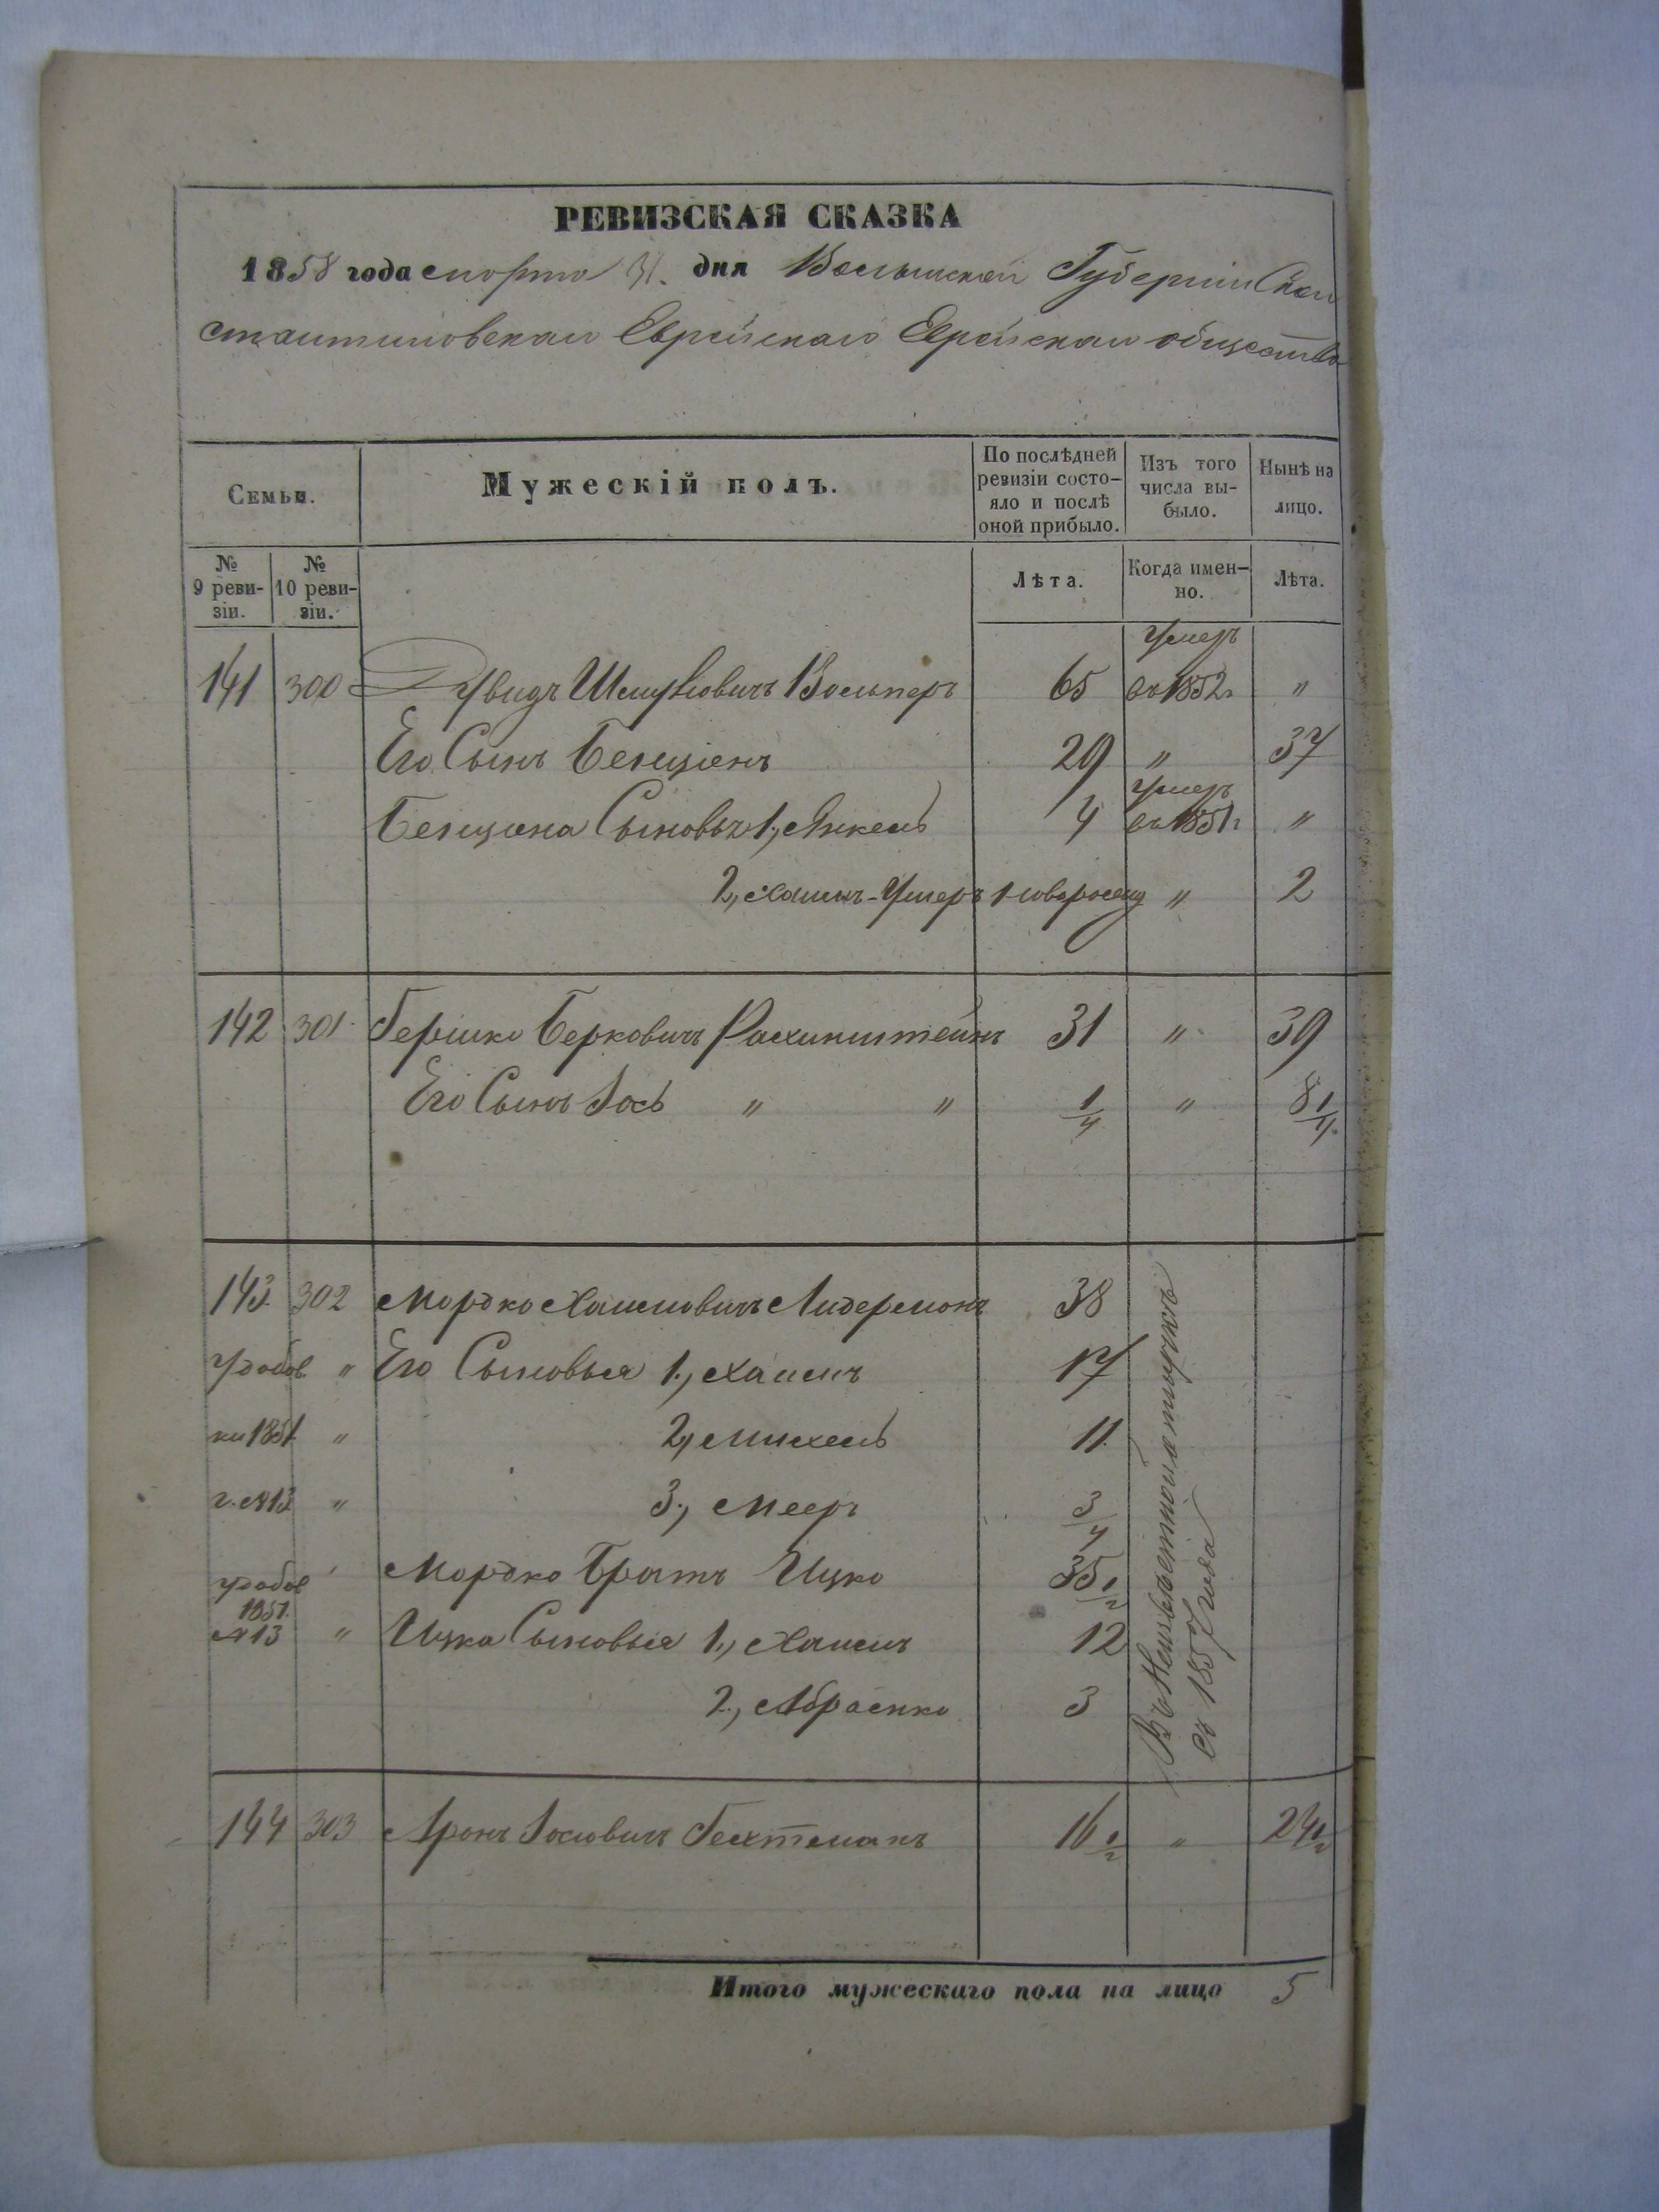 РЕВИЗСКАЯ СКАЗКА
1858 года марта 31. дня Волынской Губернии Кон
стантиновскаго Еврейскаго Еврейскаго общества
Семьи.
Мужескій полъ.
По послѣдней ревизіи состо-яло и послѣ оной прибыло.
Изъ того числа вы-было.
Нынѣ на лицо.
№ 9 реви-зіи.
№ 10 реви-зіи.
Лѣта.
Когда имен-но.
Лѣта.
141 300 Дувидъ Шмулiовичъ Вольперъ 65 умеръ въ 1852г "
Его Сынъ Бенціенъ 29 " 37
Бенціена Сыновья 1, Янкель 4 умеръ въ 1851г "
2, Хаимъ 1 " 2
142 301 Гершко Берковичъ 31 " 39
Его Сынъ Іось " " 1/4 " 8 1/4
143. 302 Мордко Хаимовичъ Лидерманъ 38
у добав " Его Сыновья 1, Хаимъ 17
ки 1851 " 2, Михель 11.
г. №13 " 3, Меер 3/4
у добав " Мордко Братъ Ицко 35 1/2
1851.
№13 " Ицка Сыновья 1, Хаимъ 12
2, Абрамко 3
съ 1857 года
144 303 Аронъ Іосіовичъ Гехтманъ 16 1/2 " 24 1/2
Итого мужескаго пола на лицо 5